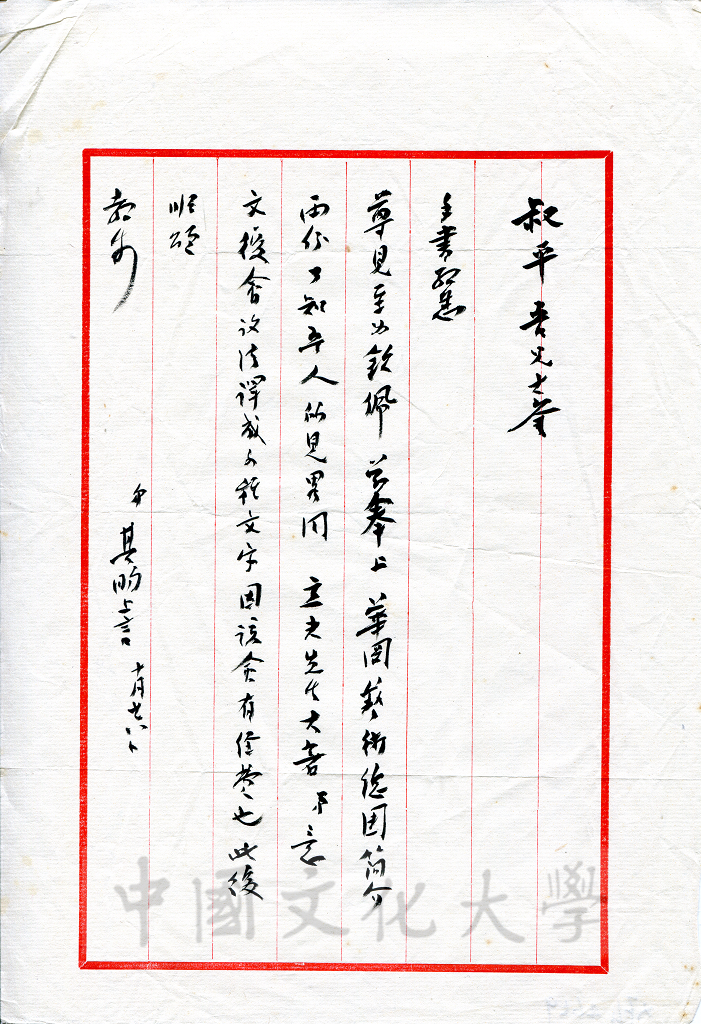 叔平吾兄大鑒
手書敬悉
尊見至為欽佩 茲奉上 華岡藝術總團簡介
兩份可知吾人所見畧同 立夫先生大著 弟意
文復會設法譯成各種文字因該會有經費也 此復
順頌
教安
弟 其昀上言 十月廿八日
中國文化大學